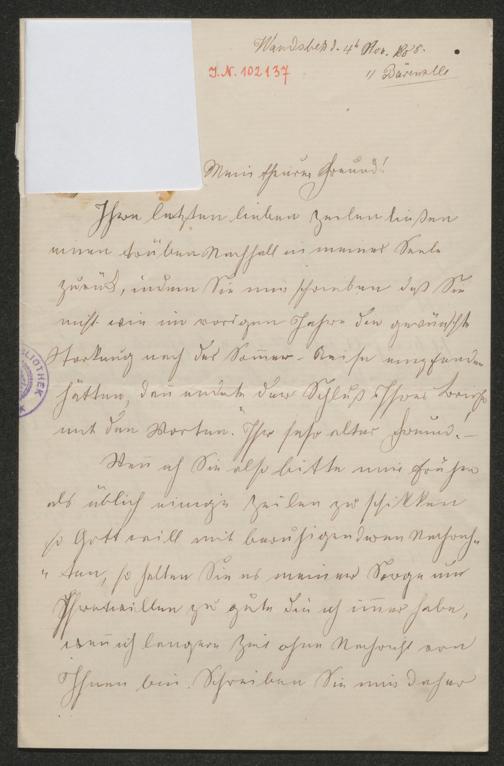 Wandsbek d. 4t Nov. 
I.N. 102137
Mein theurer Freund!
Ihre letzten lieben Zeilen ließen
einen trüben Nachhall in meiner Seele
zurück, indem Sie mir schrieben daß Sie
nicht wie im vorigen Jahre die gewünschte
Starkung nach der Sommer-Reise empfunden
hätten, den endete der Schluß Ihres Briefs
mit den Worten "Ihr sehr alter Freund.–
Wen ich Sie also bitte mir früher
als üblich einige Zeilen zu schikken
so Gott will mit beruhigenderen Nachrich-
"ten, so halten Sie es meiner Sorge um
Ihretwillen zu gute die ich immer habe,
wen ich längere Zeit ohne Nachricht von
Ihnen bin. Schreiben Sie mir daher
BLIOTHEK